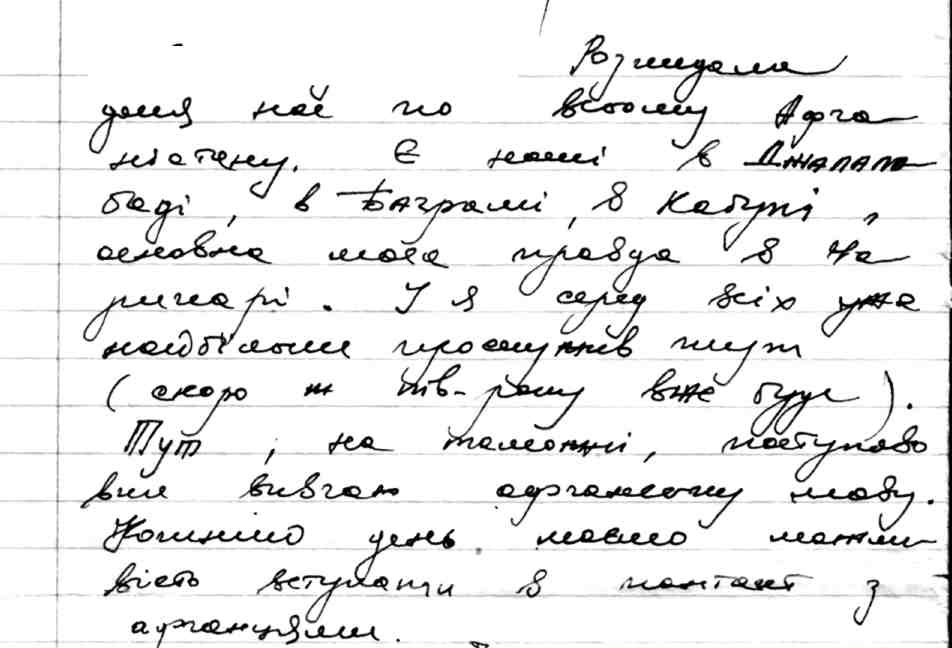 Розкидала
доля нас по всьому Афга
ністану. Є наші в Джалала
баді, в Баграмі, в Кабулі,
основна маса правда в Ха
ратоні. І я серед всіх уже
найбільше прослужив тут
(скоро ж пів-року вже буде).
Тут, на таможні, поступово
вже вивчаю афганську мову.
Кожний день маємо можли
вість вступати в контакт з
афганцями.